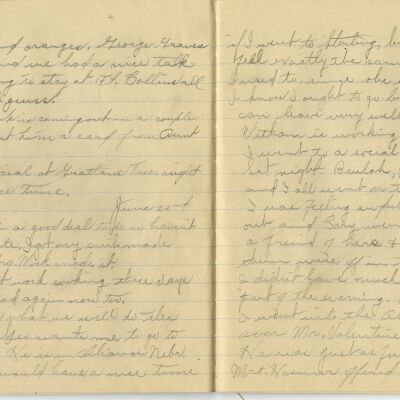 nd oranges. George Graves
nd we had a nice talk
ng to stay at Ft. Collins all
I guess.
is coming out in a couple
ut him a card from Aunt
cial at Grattan Tues. night
ce time.
June 22nd
a good deal to do so haven't
te. I got my suit made
Mrs. Mock made it.
t work cooking three days
ad again now too.
what we will do this
Geo. wants me to go to
He is in Alliance Nebr.
would have a nice time
if I went to Sterling, bu
feel exactly the sam
used to since she
I know I ought to go bu
can leave very well
is working
I went to a social
Sat night Beulah,
and I all went on t
I was feeling awful
out and Gary wen
a friend of hers &
them were off in t
I didn't have much
part of the evening.
I went into the
soon Mr. Valentine
He was just as fu
Mrs. Hoesner offered